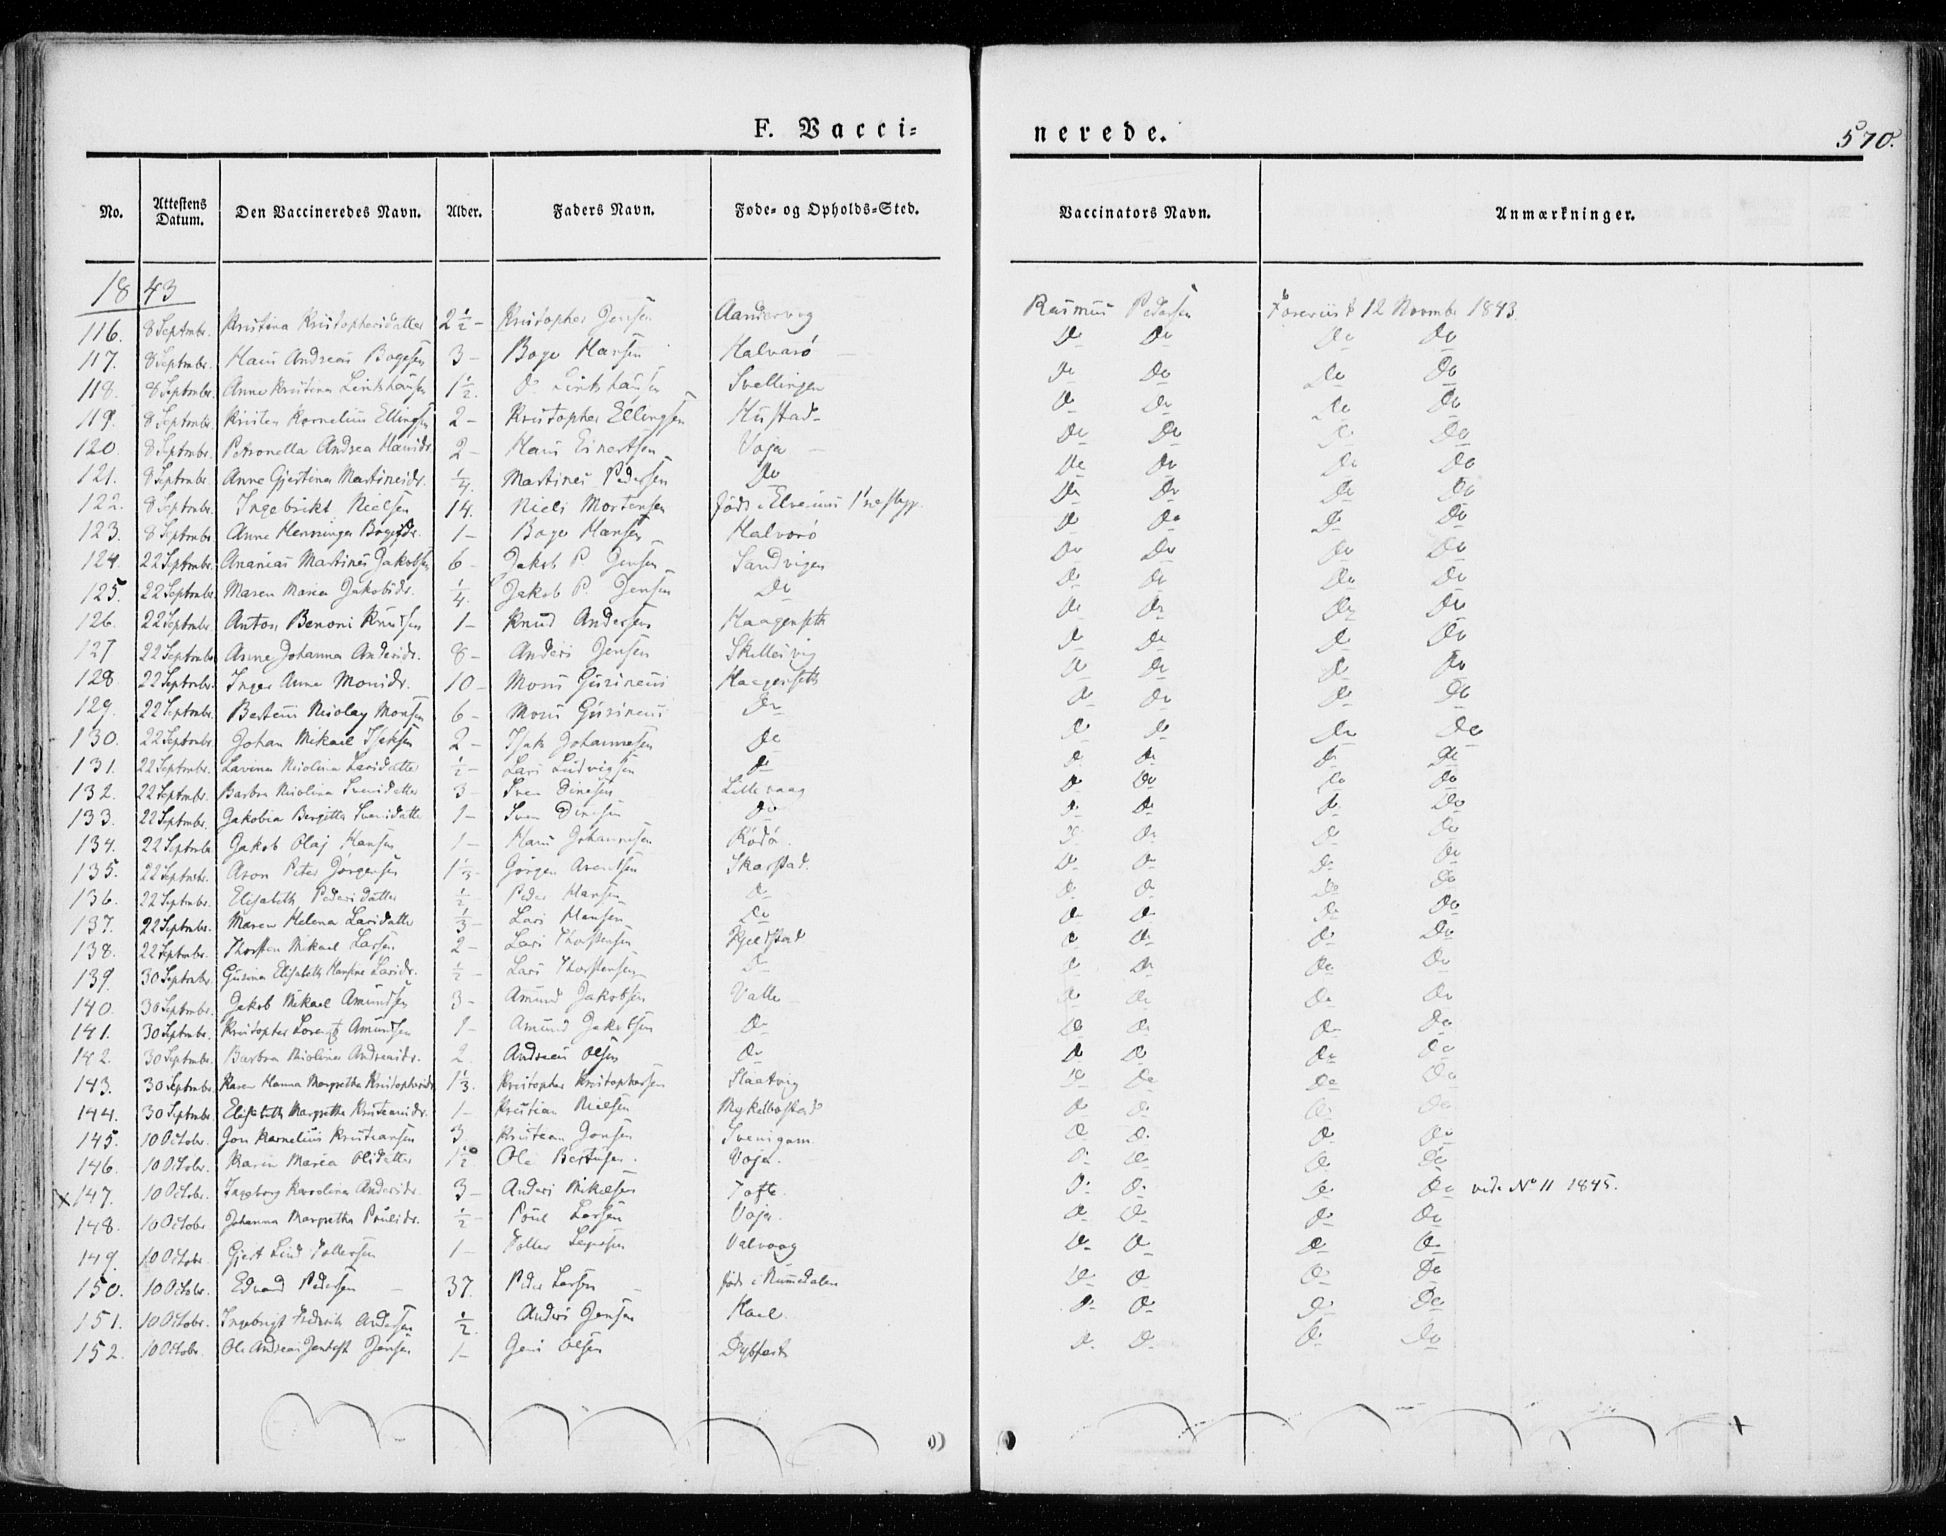 F. Vacci=
nerede.
570.
No. Attestens Datum. Den Vaccineredes Navn. Alder. Faders Navn. Føde- og Opholds-Sted. Vaccinators Navn. Anmærkninger.
1843
116. 8 Septmbr. Kristina Kristophersdatter 2½ Kristopher Jensen Rasmus Pedersen Foreviist 12 Novmbr 1843.
117. 8 Septmbr. Hans Andreas Bogesen 3 Boge Hansen Halvarø Do Do Do Do
118. 8 Septmbr. Anne Kristina 1½ Svellingen Do Do Do Do
119. 8 Septmbr. Kristen Kornelius Ellingsen 2 Kristopher Ellingsen Hustad Do Do Do Do
120. 8 Septmbr. Petronella Andrea Hansdr. 2 Hans Einertsen Voja Do Do Do Do
121. 8 Septmbr. Anne Gjertina Martinesdr. ¼ Martines Pedersen Do Do Do Do Do
122. 8 Septmbr. Ingebrikt Nielsen 14. Niels Mortensen født i Do Do Do Do
123. 8 Septmbr. Anne Henninga Bogesdr. 1 Boge Hansen Halvorø Do Do Do Do
124. 22 Septmbr. Ananias Martines Jakobsen 6 Jakob P. Jensen Sandvigen Do Do Do Do
125. 22 Septmbr. Maren Maria Jakobsdr. ¼ Jakob P. Jensen Do Do Do Do Do
126. 22 Septmbr. Anton Benoni Knudsen 1 Knud Andersen Haagenseth Do Do Do Do
127 22 Septmbr. Anne Johanna Andersdr. 8 Anders Jensen Skillesvig Do Do Do Do
128 22 Septmbr. Inger Anna Monsdr. 10 Mons Haagenseth Do Do Do Do
129. 22 Septmbr. Nicolay Monsen 6 Mons Do Do Do Do Do
130. 22 Septmbr. Johan Mikael Isaksen 2 Isak Johannesen Do Do Do Do Do
131. 22 Septmbr. Lavina Nicolina Larsdatter ½ Lars Ludvigsen Do Do Do Do Do
132. 22 Septmbr. Barbra Nicolina Svensdatter 3 Sven Dinesen Do Do Do Do
133. 22 Septmbr. Jakobia Bergitta Svensdatter 1 Sven Dinesen Do Do Do Do Do
134. 22 Septmbr. Jakob Olaj Hansen 1 Hans Johannesen Rödö Do Do Do Do
135. 22 Septmbr. Aron Peter Jørgensen Jørgen Arentsen Skarstad. Do Do Do Do
136. 22 Septmbr. Elisabeth Pedersdatter ½ Peder Hansen Do Do Do Do Do
137. 22 Septmbr. Maren Helena Larsdatter ⅓ Lars Hansen Do Do Do Do Do
138. 22 Septmbr. Thorsten Mikael Larsen 2 Lars Thorstensen Kjeldstad Do Do Do Do
139. 30 Septmbr. Elisabeth Larsdr. ½ Lars Thorstensen Do Do Do Do Do
140. 30 Septmbr. Jakob Mikael Amundsen 3 Amund Jakobsen Valle Do Do Do Do
141. 30 Septmbr. Kristopher Lorentz Amundsen 1 Amund Jakobsen Do Do Do Do Do
142. 30 Septmbr. Barbra Nicolina Andreasdr. 2. Andreas Olsen Do Do Do Do Do
143. 30 Septmbr. Karen Hanna Margretha Kristophersdr. 1⅓. Kristopher Kristophersen Slaatvig Do Do Do Do
144. 30 Septmbr. Elisabeth Margretha Kristiansdr. 1 Kristian Nielsen Myklebostad Do Do Do Do
145. 10 Octobr. Jon Karnelius Kristiansen 3. Kristian Jonsen Do Do Do Do
146. 10 Octobr. Karen Maria Olsdatter 1½ Ole Bertusen. Voja. Do Do Do Do
x 147. 10 Octobr. Ingeborg Karolina Andersdr. 3 Anders Mikelsen Tofte. Do Do Do Do vide No 11 1845.
148. 10 Octobr. Johanna Margretha Poulsdr. ½ Poul Larsen Voja. Do Do Do Do
149. 10 Octobr. Gjert Lind Tollersen 1 Toller Valvaag Do Do Do Do
150. 10 Octobr. Edvard Pedersen 37. Peder Larsen født i Numedalen Do Do Do Do
151. 10 Octobr. Ingebrigt Fredrik Andersen ½ Anders Jensen Do Do Do Do
152. 10 Octobr. Ole Andreas Jentoft Jensen 1 Jens Olsen Dybfest Do Do Do Do